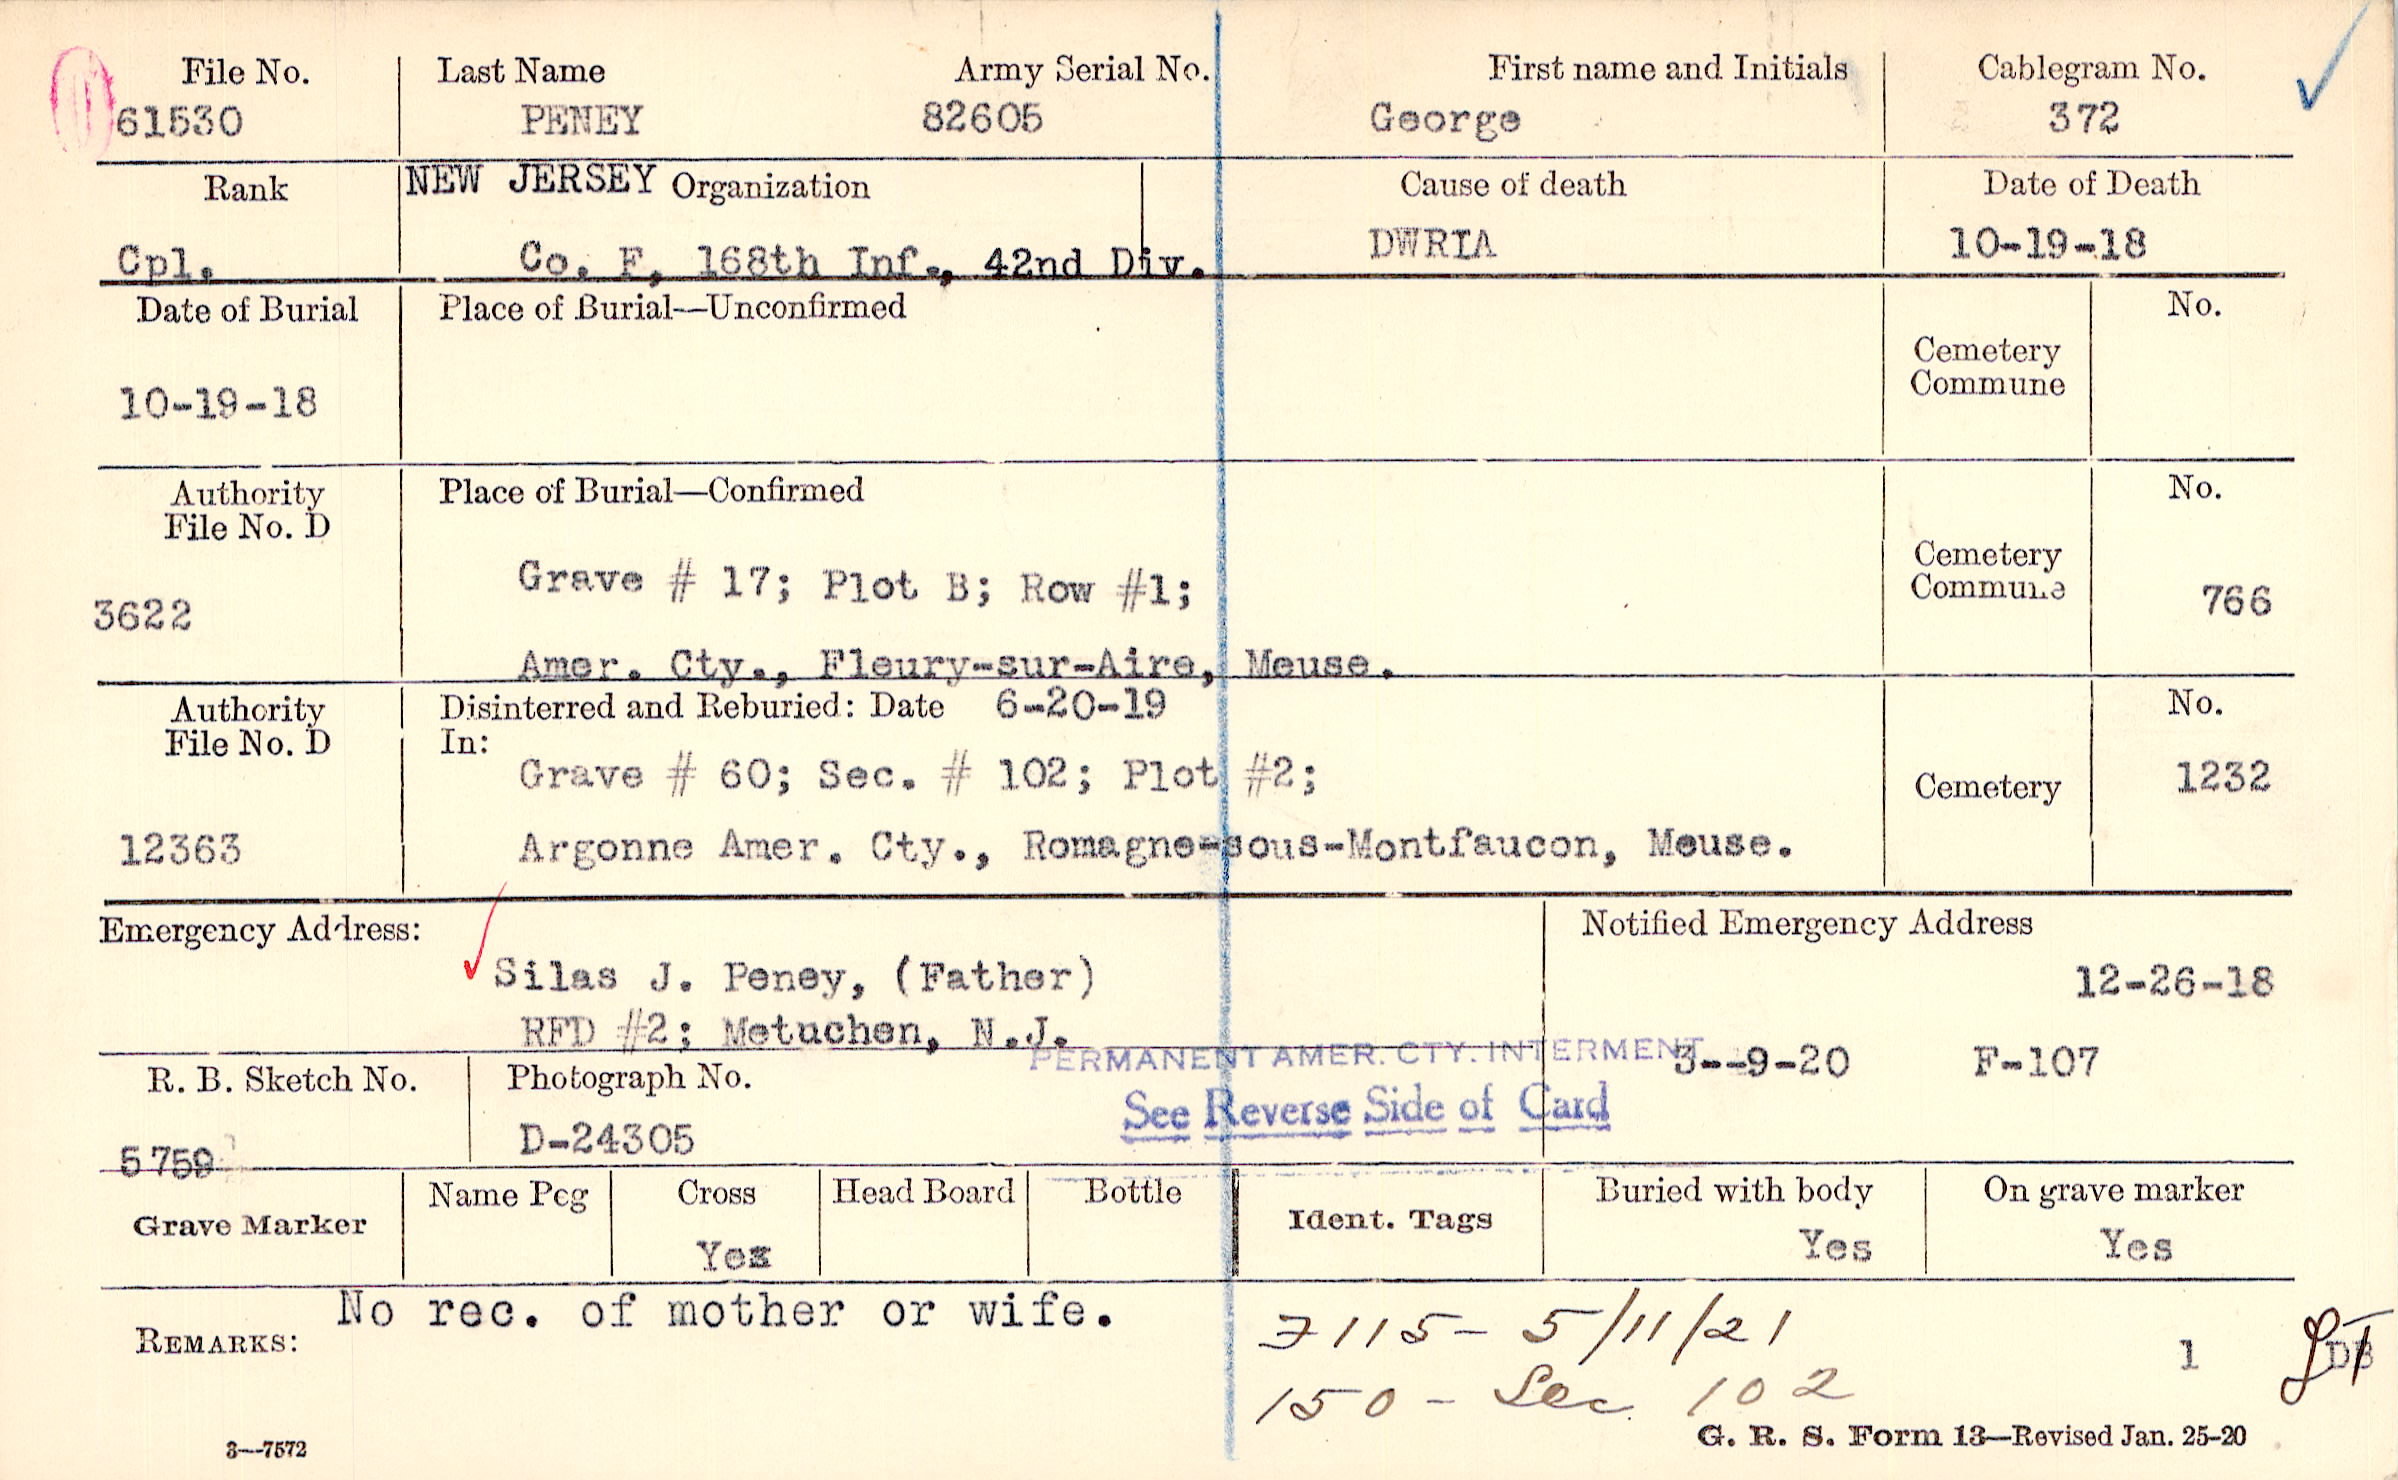 File No. Last Name Army Serial No. First name and Initials Cablegram No.
61530 PENEY 82605 George 372
Rank NEW JERSEY Organization Cause of death Date of Death
Cpl. Co. F, 168th Inf., 42nd Div. DWRIA 10-19-18
Date of Burial Place of Burial—Unconfirmed No.
Cemetery
Commune
10-19-18
Authority Place of Burial—Confirmed No.
File No. D
Cemetery
Commune
Grave # 17; Plot B; Row #1;
3622 766
Amer. Cty., Fleury-sur-Aire, Meuse.
Authority Disinterred and Reburied: Date 6-20-19 No.
File No. D In:
Grave # 60; Sec. # 102; Plot #2; Cemetery 1232
12363 Argonne Amer. Cty., Romagne-sous-Montfaucon, Meuse.
Emergency Address: Notified Emergency Address
Silas J. Peney, (Father) 12-26-18
RFD #2; Metuchen, N.J.
PERMANENT AMER. CTY. INTERMENT 3--9-20 F-107
R. B. Sketch No. Photograph No.
See Reverse Side of Card
5759 D-24305
Grave Marker Name Peg Cross Head Board Bottle Ident. Tags Buried with body On grave marker
Yes Yes Yes
No rec. of mother or wife.
REMARKS: 7115- 5/11/21
1 DB
150 - Sec 102
3—7572 G. R. S. Form 13—Revised Jan. 25-20